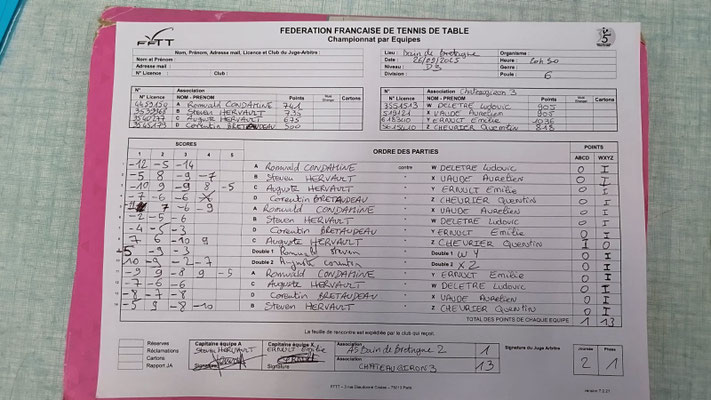 FFTT
FEDERATION FRANCAISE DE TENNIS DE TABLE
Championnat par Equipes
5
Nom, Prénom, Adresse mail, Licence et Club du Juge-Arbitre :
Nom et Prénom :
Adresse mail :
N° Licence : Club :
Lieu : Bain de Bretagne Organisme :
Date : 26/09/2025 Heure : 20h30
Niveau : D3 Genre :
Division : Poule : 6
N° Association
N° Licence NOM - PRENOM Points Cartons
A Romuald CONDAMINE 741
B Steven HERVAULT 733
C Auguste HERVAULT 675
D Corentin BRETAUDEAU 500
N° Association Chateaugiron 3
N° Licence NOM - PRENOM Points Cartons
3551513 W DELETRE Ludovic 905
X VAUDE Aurélien 905
Y ERNOULT Emilie 1036
Z CHEVRIER Quentin 818
SCORES ORDRE DES PARTIES POINTS
1 2 3 4 5 ABCD WXYZ
-12 -5 -14 A Romuald CONDAMINE contre W DELETRE Ludovic 0 1
-5 8 -9 -7 B Steven HERVAULT " X VAUDE Aurelien 0 1
-10 9 -9 8 -5 C Auguste HERVAULT " Y ERNOULT Emilie 0 1
7 -6 -6 D Corentin BRETAUDEAU " Z CHEVRIER QUENTIN 0 1
7 -6 -9 A Romuald CONDAMINE " X VAUDE Aurelien 0 1
-2 -5 -6 B Steven HERVAULT " W DELETRE Ludovic 0 1
-4 -5 -3 D Corentin BRETAUDEAU " Y ERNOULT Emilie 0 1
7 6 -10 9 C Auguste HERVAULT " Z CHEVRIER Quentin 1 0
-5 -9 -3 Double 1 Romuald Steven " Double 1 W Y 0 1
10 -9 -2 -7 Double 2 Auguste Corentin " Double 2 X Z 0 1
-9 9 8 9 -5 A Romuald CONDAMINE " Y ERNOULT Emilie 0 1
-7 -6 -6 C Auguste HERVAULT " W DELETRE Ludovic 0 1
-8 -7 -8 D Corentin BRETAUDEAU " X VAUDE Aurelien 0 1
-5 9 -8 -10 B Steven HERVAULT " Z CHEVRIER Quentin 0 1
TOTAL DES POINTS DE CHAQUE EQUIPE 1 13
La feuille de rencontre est expédiée par le club qui reçoit.
Réserves
Réclamations
Cartons
Rapport JA
Capitaine équipe A
Steven HERVAULT
Signature
Capitaine équipe X
ERNOULT Emilie
Signature
Association
AS Bain de Bretagne 2 1
Association
CHATEAUGIRON 3 13
Signature du Juge Arbitre
Journée Phase
2 1